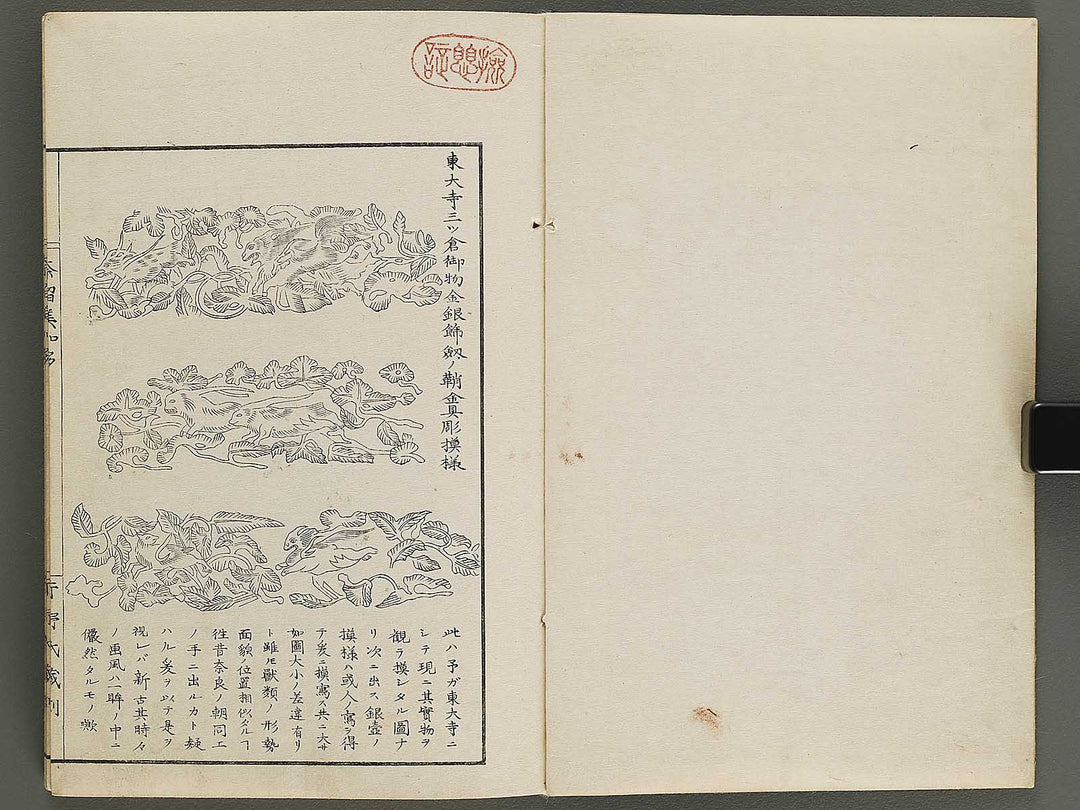 東大寺三ツ倉御物金銀飾劔ノ鞘金具彫摸様
此ハ予ガ東大寺ニ
シテ現ニ其實物ヲ
観ラ摸シタル圖ナ
リ次ニ出ス銀壺ノ
摸様ハ或人ノ寫ヲ得
テ爰ニ摸寫ス共ニ大サ
如圖大小ノ差違有リ
ト雖モ獸類ノ形勢
面貌ノ位置相似タルヿ
徃昔奈良ノ朝同工
ノ手ニ出ルカト疑
ハル爰ヲ以テ是ヲ
視レバ新古其時々
ノ画風ハ一眸ノ中ニ
儼然タルモノ歟